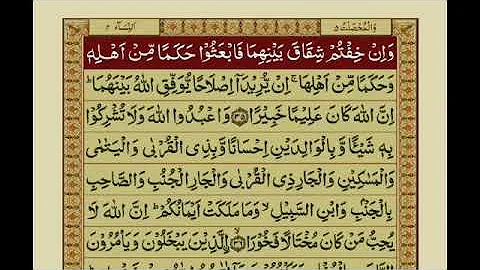 وَالْمُحْصَنٰتُ ٥ النِّسَآء ٤
وَاِنْ خِفْتُمْ شِقَاقَ بَيْنِهِمَا فَابْعَثُوْا حَكَمًا مِّنْ اَهْلِهٖ
وَحَكَمًا مِّنْ اَهْلِهَا ۚ اِنْ يُّرِيْدَاۤ اِصْلَاحًا يُّوَفِّقِ اللّٰهُ بَيْنَهُمَا ؕ
اِنَّ اللّٰهَ كَانَ عَلِيْمًا خَبِيْرًا ﴿٣٥﴾ وَاعْبُدُوا اللّٰهَ وَلَا تُشْرِكُوْا
بِهٖ شَيْـًٔا وَّبِالْوَالِدَيْنِ اِحْسَانًا وَّبِذِى الْقُرْبٰى وَالْيَتٰمٰى
وَالْمَسٰكِيْنِ وَالْجَارِ ذِى الْقُرْبٰى وَالْجَارِ الْجُنُبِ وَالصَّاحِبِ
بِالْجَنْۢبِ وَابْنِ السَّبِيْلِ ۙ وَمَا مَلَكَتْ اَيْمَانُكُمْ ؕ اِنَّ اللّٰهَ لَا
يُحِبُّ مَنْ كَانَ مُخْتَالًا فَخُوْرًا ﴿٣٦﴾ الَّذِيْنَ يَبْخَلُوْنَ وَيَاْمُرُوْنَ